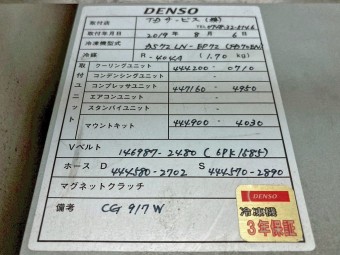 DENSO
取付店 TDサービス(株)
取付年月日 2019年 8月 6日
冷凍機型式
冷媒 R-404A (1.70 kg)
取付ユニット
クーリングユニット 444200-0710
コンデンシングユニット
コンプレッサユニット 447160-4950
エアコンユニット
スタンバイユニット
マウントキット 444900-4030
Vベルト 146987-2480 (6PK1585)
ホース D 444580-2702 S 444570-2890
マグネットクラッチ
備考 CG 917W
DENSO
冷凍機
3年保証